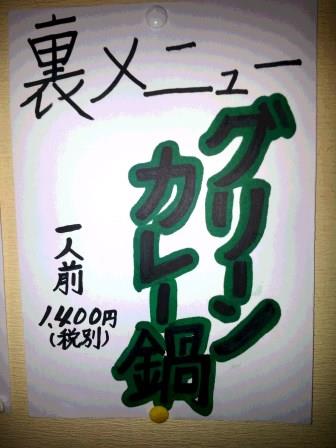 裏メニュー
グリーン
カレー鍋
一人前
1,400円
(税別)